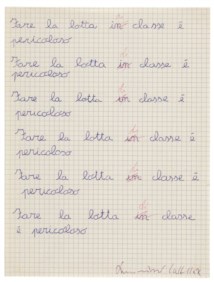 Fare la lotta in classe è
pericoloso
Fare la lotta in classe è
pericoloso
Fare la lotta in classe è
pericoloso
Fare la lotta in classe è
pericoloso
Fare la lotta in classe è
pericoloso
Fare la lotta in classe
è pericoloso